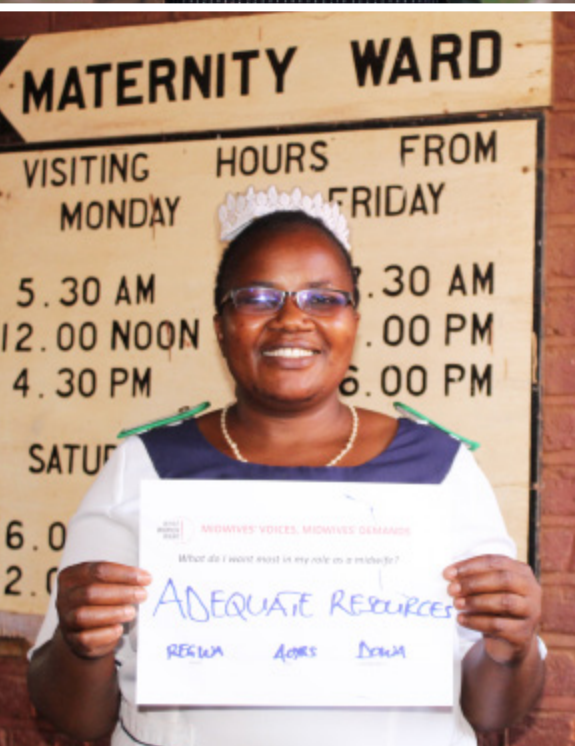 MATERNITY WARD
VISITING HOURS FROM
MONDAY FRIDAY
5.30 AM .30 AM
12.00 NOON .00 PM
4.30 PM 6.00 PM
SATU
6.0
2.0
WHAT WOMEN WANT
MIDWIVES' VOICES, MIDWIVES' DEMANDS
What do I want most in my role as a midwife?
ADEQUATE RESOURCES
DOWA